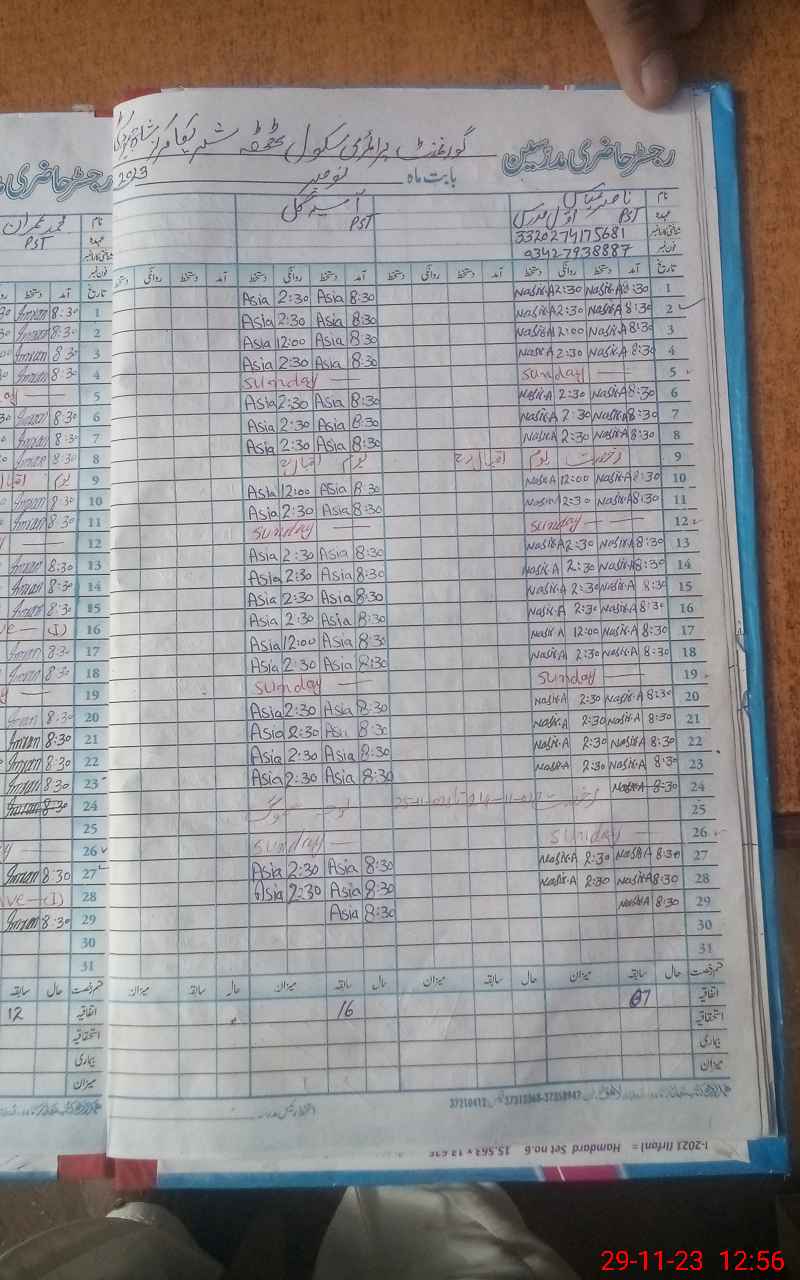 رجسٹر حاضری مدرسین گورنمنٹ پرائمری سکول ٹھٹھہ
بابت ماہ نومبر 2023
نام ناصر عباس آسیہ گل
عہدہ PST اول مدرس PST
3320274175681
03427938887
تاریخ آمد دستخط روانگی دستخط آمد دستخط روانگی دستخط آمد دستخط روانگی دستخط آمد دستخط روانگی دستخط
1 8:30 Nasir.A 2:30 Nasir.A 8:30 Asia 2:30 Asia
2 8:30 Nasir.A 2:30 Nasir.A 8:30 Asia 2:30 Asia
3 8:30 Nasir.A 12:00 Nasir.A 8:30 Asia 12:00 Asia
4 8:30 Nasir.A 2:30 Nasir.A 8:30 Asia 2:30 Asia
5 Sunday Sunday
6 8:30 Nasir.A 2:30 Nasir.A 8:30 Asia 2:30 Asia
7 8:30 Nasir.A 2:30 Nasir.A 8:30 Asia 2:30 Asia
8 8:30 Nasir.A 2:30 Nasir.A 8:30 Asia 2:30 Asia
9 رخصت یوم اقبال یوم اقبال
10 8:30 Nasir.A 12:00 Nasir.A 8:30 Asia 12:00 Asia
11 8:30 Nasir.A 2:30 Nasir.A 8:30 Asia 2:30 Asia
12 Sunday Sunday
13 8:30 Nasir.A 2:30 Nasir.A 8:30 Asia 2:30 Asia
14 8:30 Nasir.A 2:30 Nasir.A 8:30 Asia 2:30 Asia
15 8:30 Nasir.A 2:30 Nasir.A 8:30 Asia 2:30 Asia
16 8:30 Nasir.A 2:30 Nasir.A 8:30 Asia 2:30 Asia
17 8:30 Nasir.A 12:00 Nasir.A 8:30 Asia 12:00 Asia
18 8:30 Nasir.A 2:30 Nasir.A 8:30 Asia 2:30 Asia
19 Sunday Sunday
20 8:30 Nasir.A 2:30 Nasir.A 8:30 Asia 2:30 Asia
21 8:30 Nasir.A 2:30 Nasir.A 8:30 Asia 2:30 Asia
22 8:30 Nasir.A 2:30 Nasir.A 8:30 Asia 2:30 Asia
23 8:30 Nasir.A 2:30 Nasir.A 8:30 Asia 2:30 Asia
24 8:30 Nasir.A
25 رخصت بوجہ سموگ
26 Sunday Sunday
27 8:30 Nasir.A 2:30 Nasir.A 8:30 Asia 2:30 Asia
28 8:30 Nasir.A 2:30 Nasir.A 8:30 Asia 2:30 Asia
29 8:30 Nasir.A 8:30 Asia
30
31
قسم رخصت حال سابقہ میزان حال سابقہ میزان حال سابقہ میزان حال سابقہ میزان
اتفاقیہ 07 16
استحقاقیہ
بیماری
میزان
رجسٹر حاضری
نام محمد عمران
عہدہ PST
تاریخ آمد دستخط
1 8:30 Imran
2 8:30 Imran
3 8:30 Imran
4 8:30 Imran
5
6 8:30 Imran
7 8:30 Imran
8 8:30 Imran
9 یوم اقبال
10 8:30 Imran
11 8:30 Imran
12
13 8:30 Imran
14 8:30 Imran
15 8:30 Imran
16 (I)
17 8:30 Imran
18 8:30 Imran
19
20 8:30 Imran
21 8:30 Imran
22 8:30 Imran
23 8:30 Imran
24 8:30 Imran
25
26
27 8:30 Imran
28 (I)
29 8:30 Imran
30
31
قسم رخصت حال سابقہ
اتفاقیہ 12
استحقاقیہ
بیماری
میزان
29-11-23 12:56